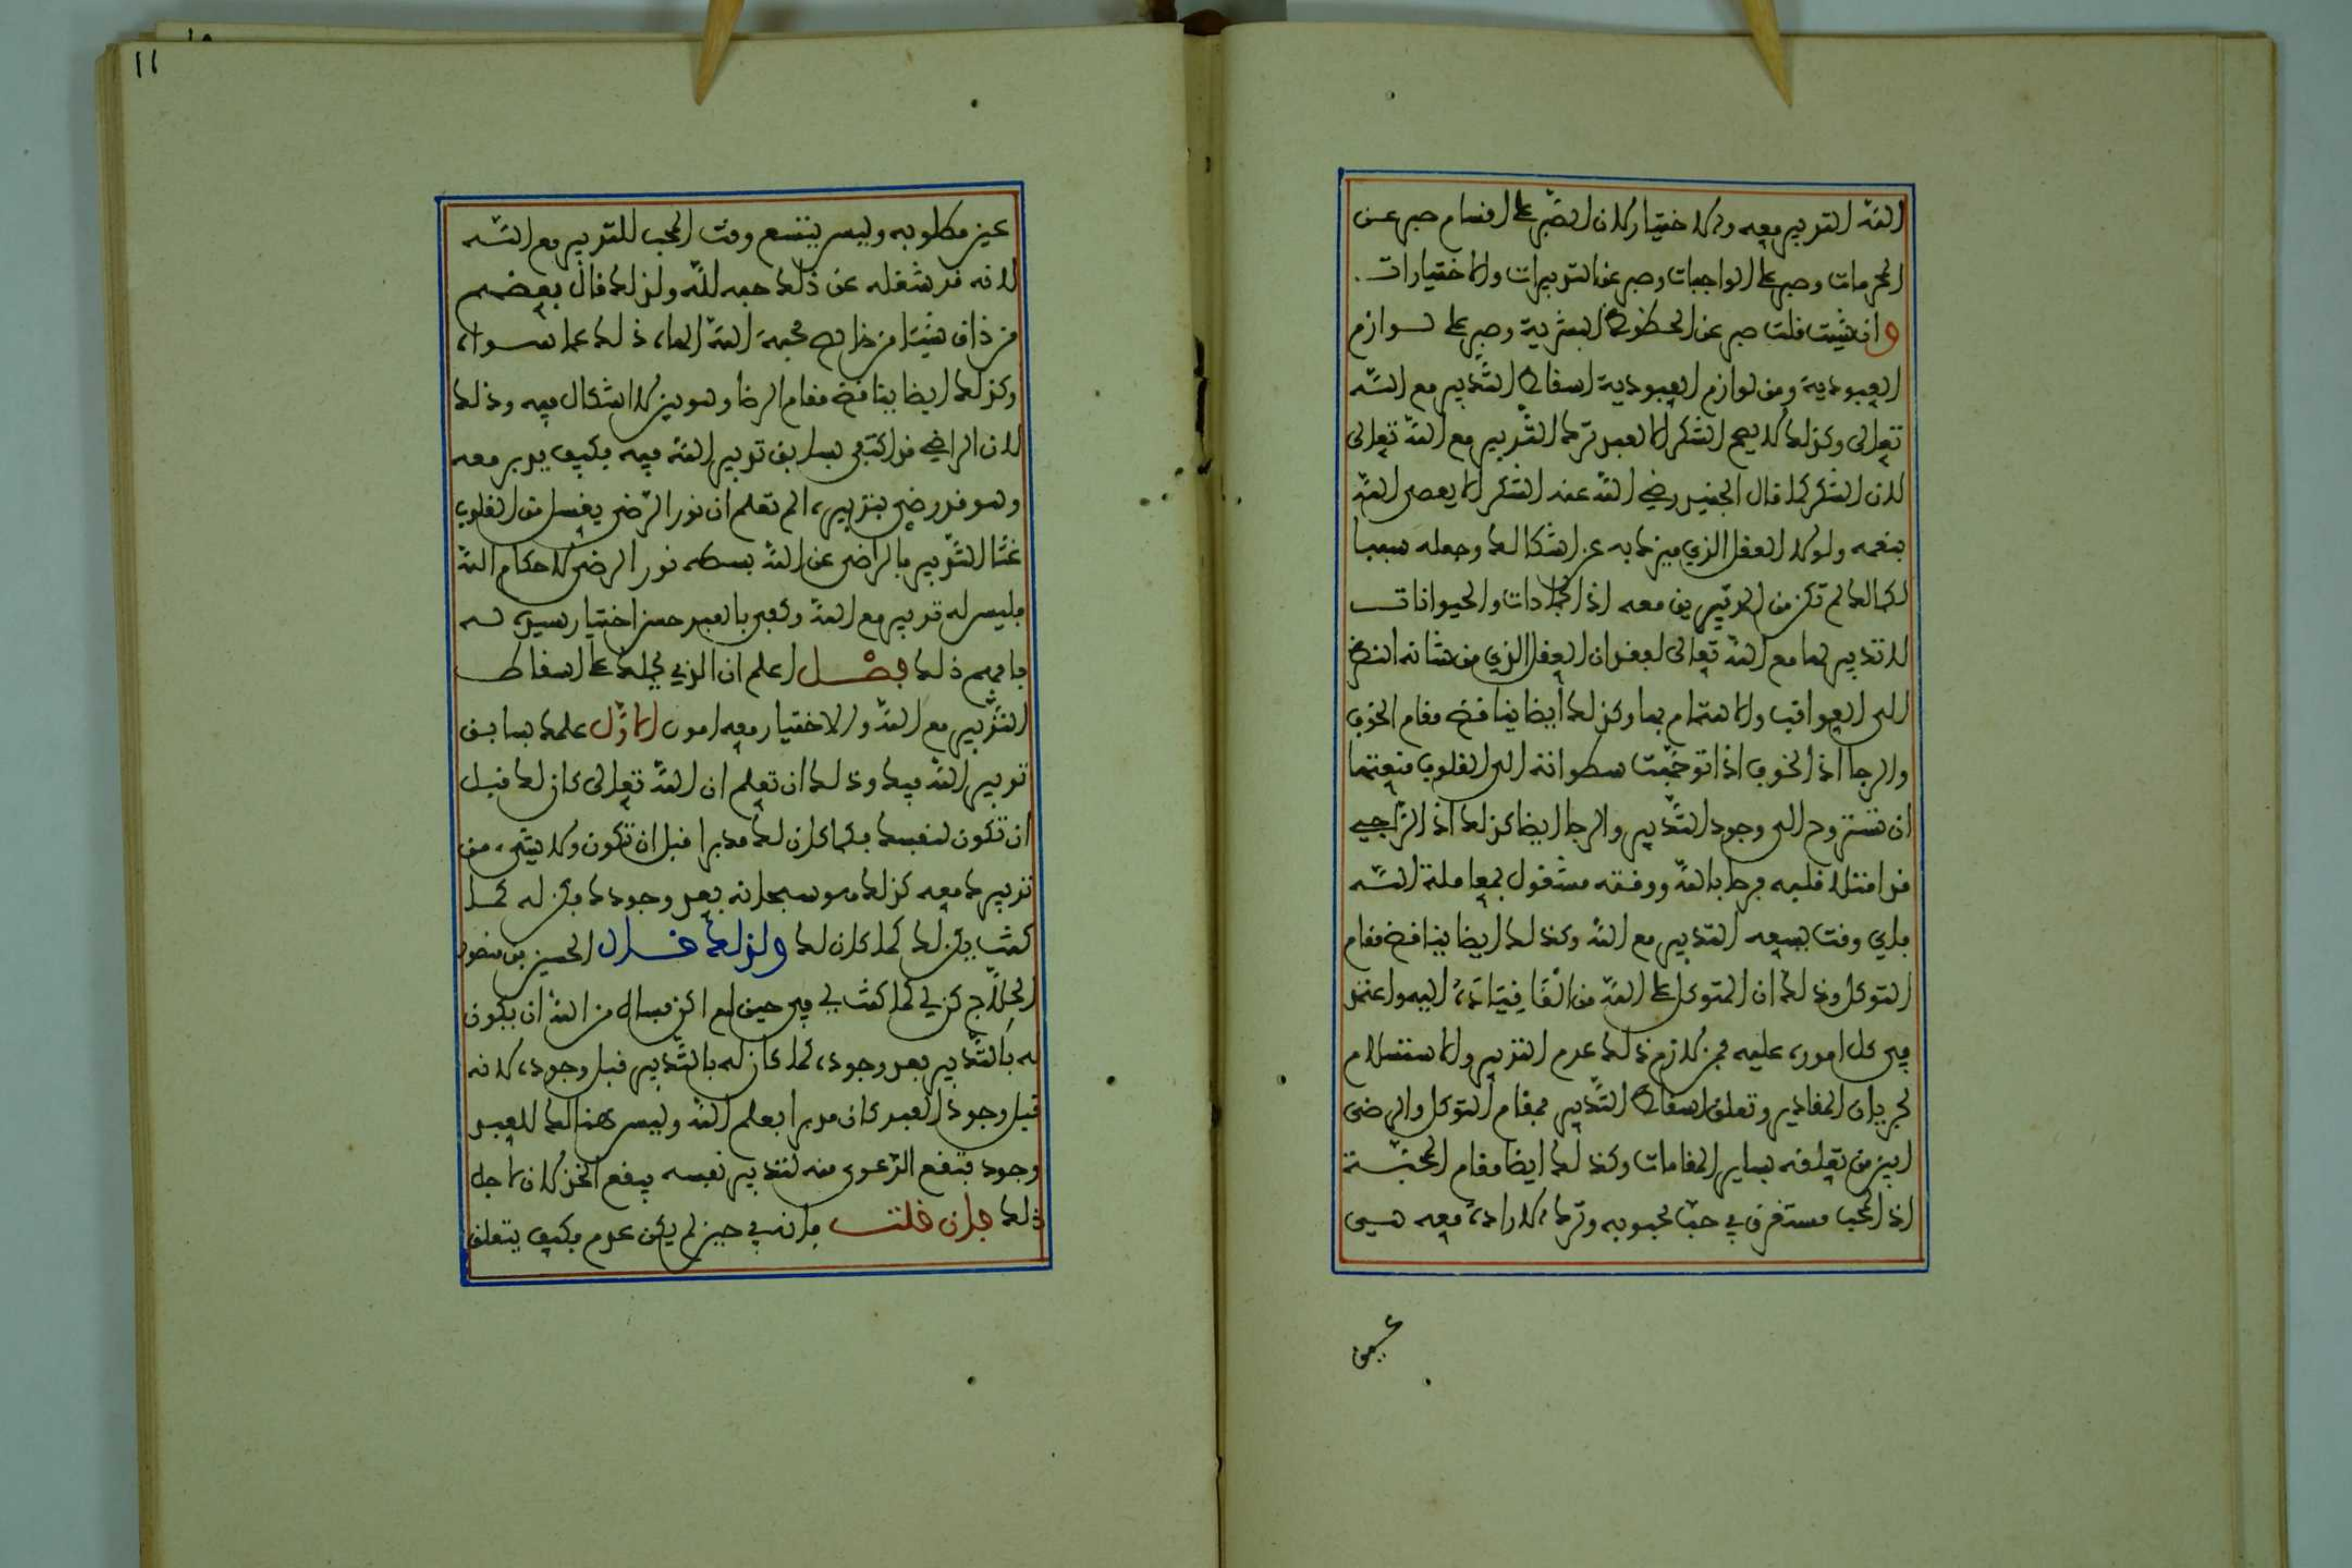 الله التدبير معه والاختيار لان الصبر على اقسام صبر عن
المحرمات وصبر على الواجبات وصبر عن التدبيرات والاختيارات .
وان شيت قلت صبر عن الحظوظ البشرية وصبر على لوازم
العبودية ومن لوازم العبودية اسقاط التدبير مع الله
تعالى وكذلك لا يصح الشكر الا لعبد ترك التدبير مع الله تعالى
لان الشكر كما قال الجنيد رضي الله عنه الشكر الا يعصى الله
بنعمه ولولا العقل الذي ميزك به عن اشكالك وجعله سببا
لكمالك لم تكن من المدبرين معه اذ الجمادات والحيوانات
لا تدبير لها مع الله تعالى لفقدان العقل الذي من شانه النظر
الى العواقب والاهتمام بها وكذلك أيضا يناقض مقام الخوف
والرجا اذ الخوف اذا توجهت سطواته الى القلوب منعتها
ان تستروح الى وجود التدبير والرجا ايضا كذلك اذ الراجي
قد امتلا قلبه فرحا بالله ووقته مشغول بمعاملة الله
فاي وقت يسعه التدبير مع الله وكذلك ايضا يناقض مقام
التوكل وذلك ان المتوكل على الله من القا قياده اليه واعتمد
في كل اموره عليه فمن لازم ذلك عدم التدبير والاستسلام
لجريان المقادير وتعلق اسقاط التدبير بمقام التوكل والرضى
ابين من تعلقه بساير المقامات وكذلك ايضا مقام المحبة
اذ المحب مستغرق في حب محبوبه وترك الارادة معه هي
عين
١١
عين مطلوبه وليس يتسع وقت المحب للتدبير مع الله
لانه قد شغله عن ذلك حبه لله ولذلك قال بعضهم
من ذاق شيئا من خالص محبة الله الهاه ذلك عما سواه
وكذلك ايضا يناقض مقام الرضا وهو بين لا اشكال فيه وذلك
لان الراضي قد اكتفى بسابق تدبير الله فيه فكيف يدبر معه
وهو قد رضي بتدبيره الم تعلم ان نور الرضى يغسل من القلوب
غثا التدبير فالراضى عن الله بسطه نور الرضى لاحكام الله
فليس له تدبير مع الله وكفى بالعبد حسن اختيار سيده له
فافهم ذلك فصل اعلم ان الذي يحملك على اسقاط
التدبير مع الله والاختيار معه امور الاول علمك بسابق
تدبير الله فيك وذلك ان تعلم ان الله تعالى كان لك قبل
ان تكون لنفسك فكما كان لك مدبرا قبل ان تكون ولا شيء من
تدبيرك معه كذلك هو سبحانه بعد وجودك فكن له كما
كنت يكن لك كما كان لك ولذلك قال الحسين بن منصور
الحلاج كن لي كما كنت لي في حين لم اكن فسال من الله ان يكون
له بالتدبير بعد وجوده كما كان له بالتدبير قبل وجوده لانه
قبل وجود العبد كان مدبرا بعلم الله وليس هنالك للعبد
وجود فتقع الدعوى منه لتدبير نفسه فيقع الخذلان لاجل
ذلك فان قلت فانه في حين لم يكن عدم فكيف يتعلق